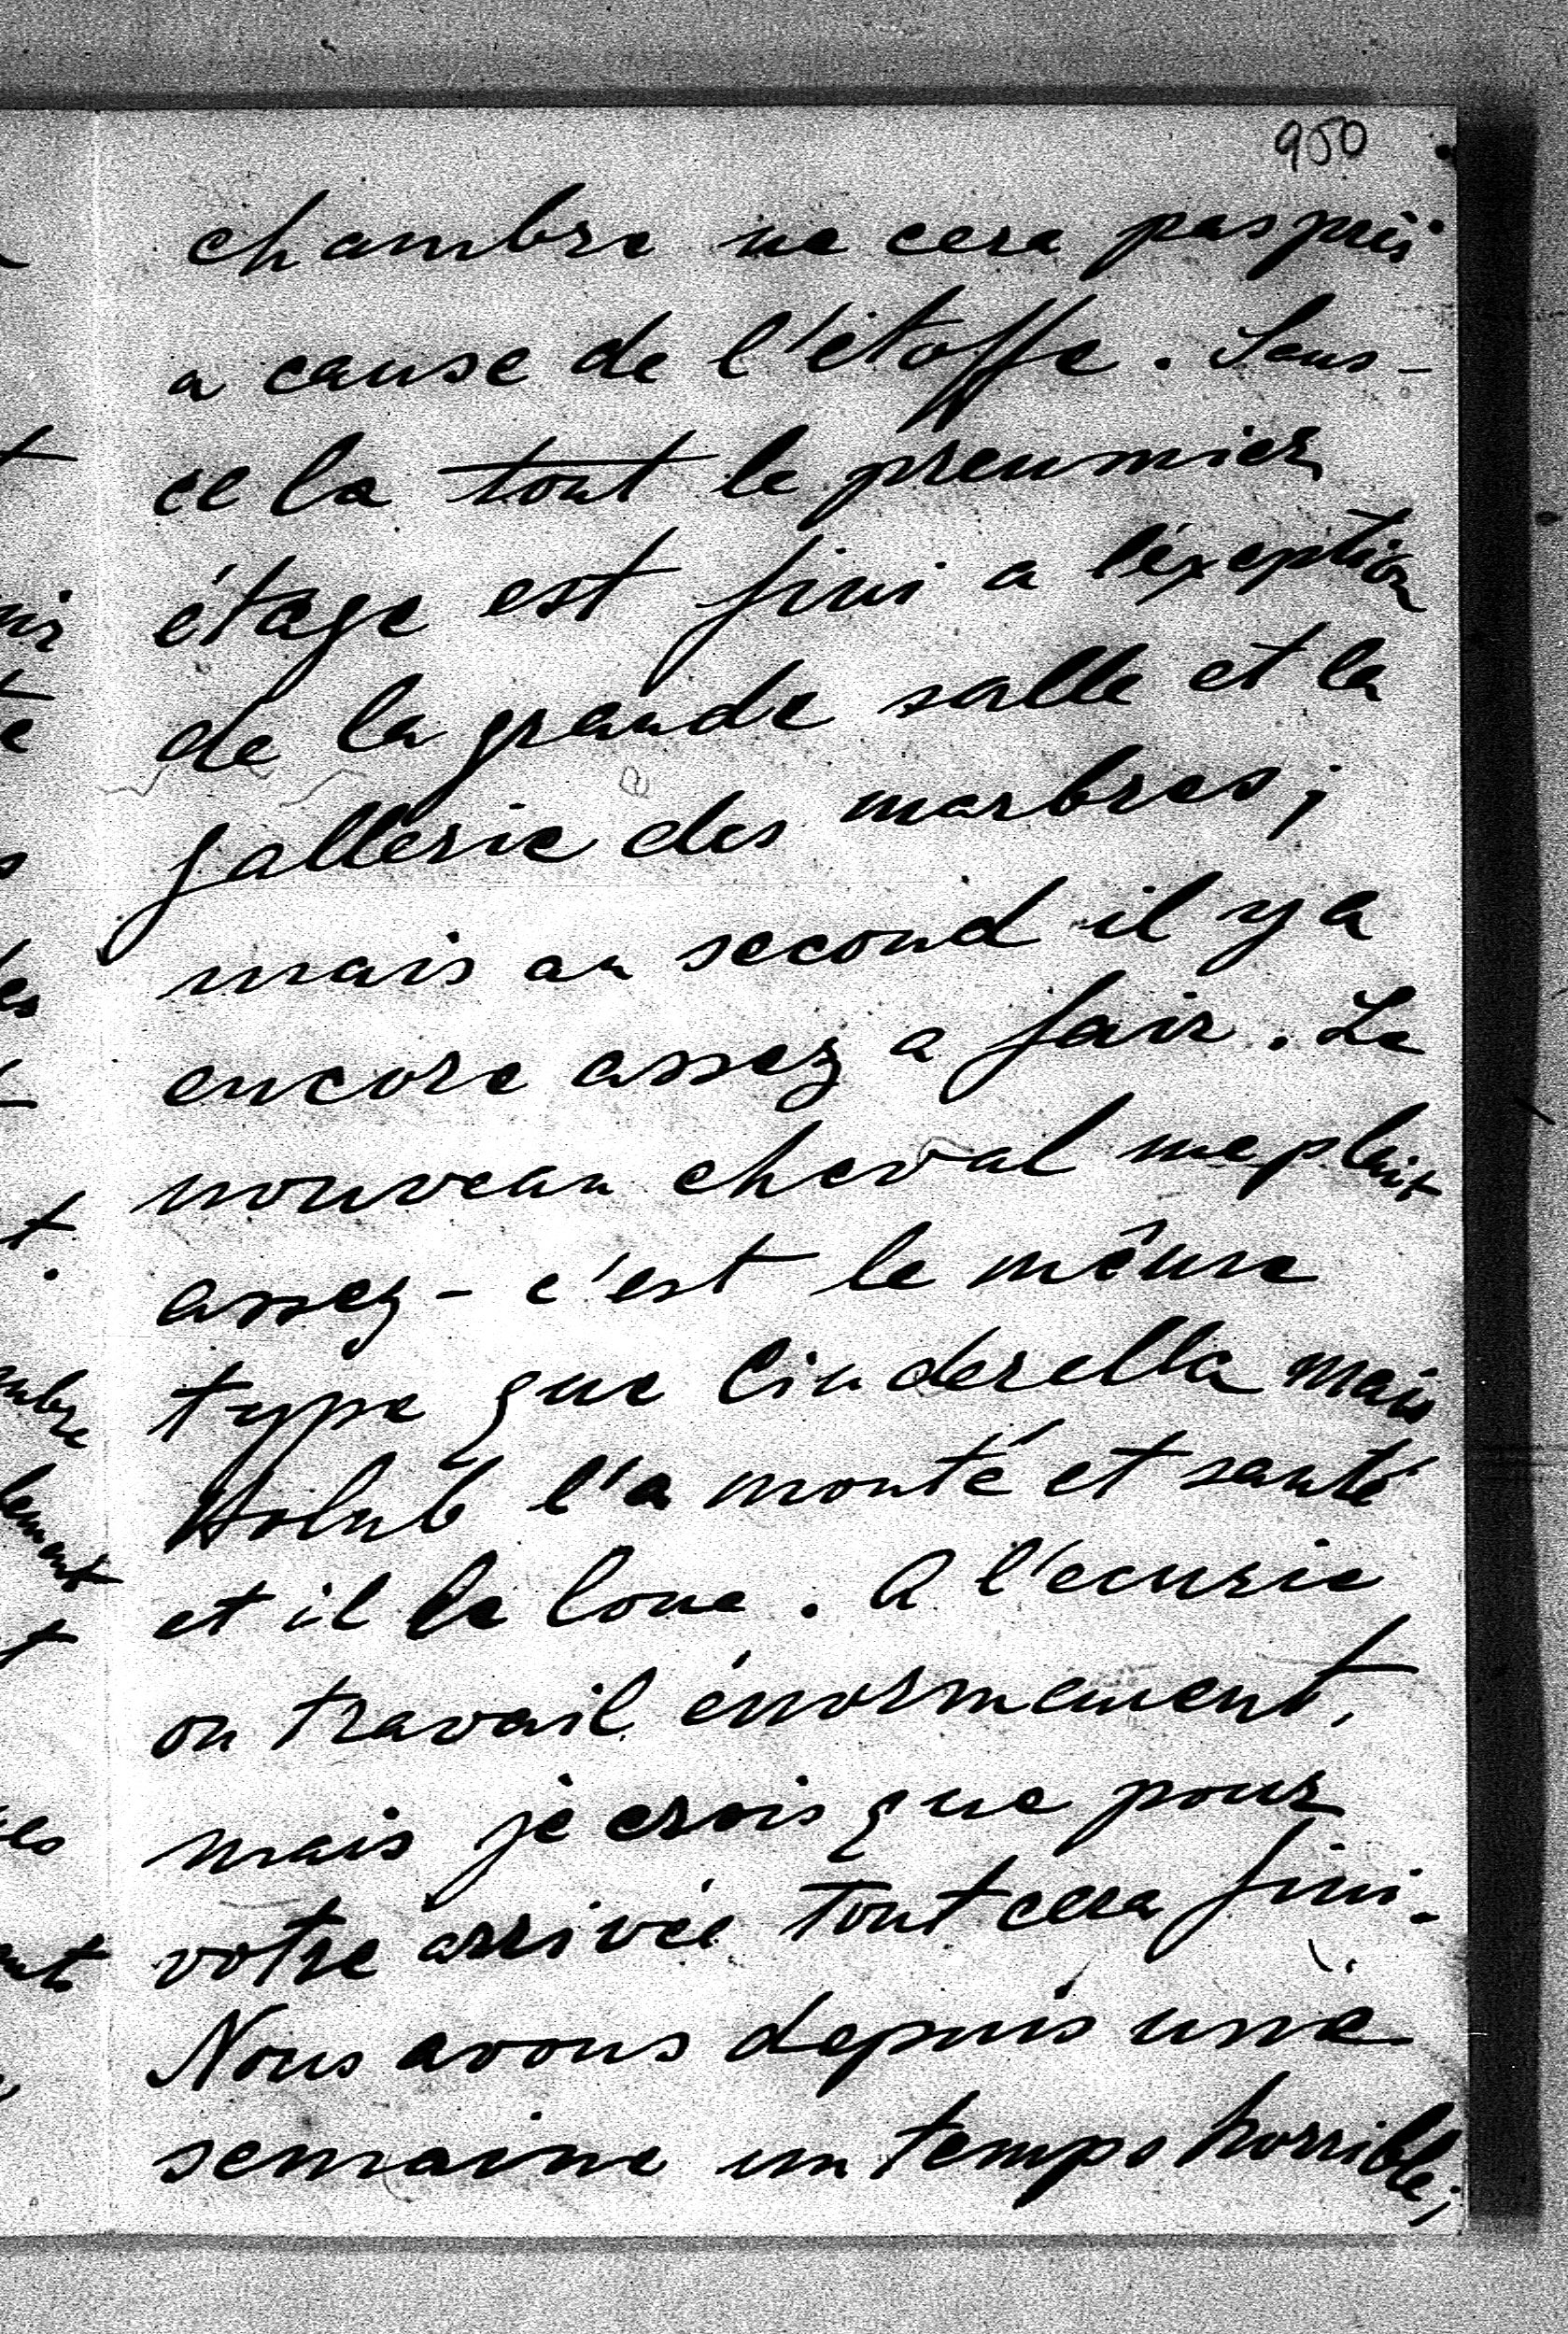 950
chambre ne cera pas prês
a cause de l'étoffe. Sans-
cela tout le preumier
étage est fini a l'éxeption
de la grande salle et la
gallerie des marbres;
mais au second il y a
encore assez a fair. Le
nouveau cheval me plait
assez - c'est le même
type que Cinderella mais
Holub l'a monté et santé
et il le loue. A l'ecurie
on travail énormement,
mais je crois que pour
votre arrivée tout cera fini.
Nous avons depuis une
semaine un temps horrible;